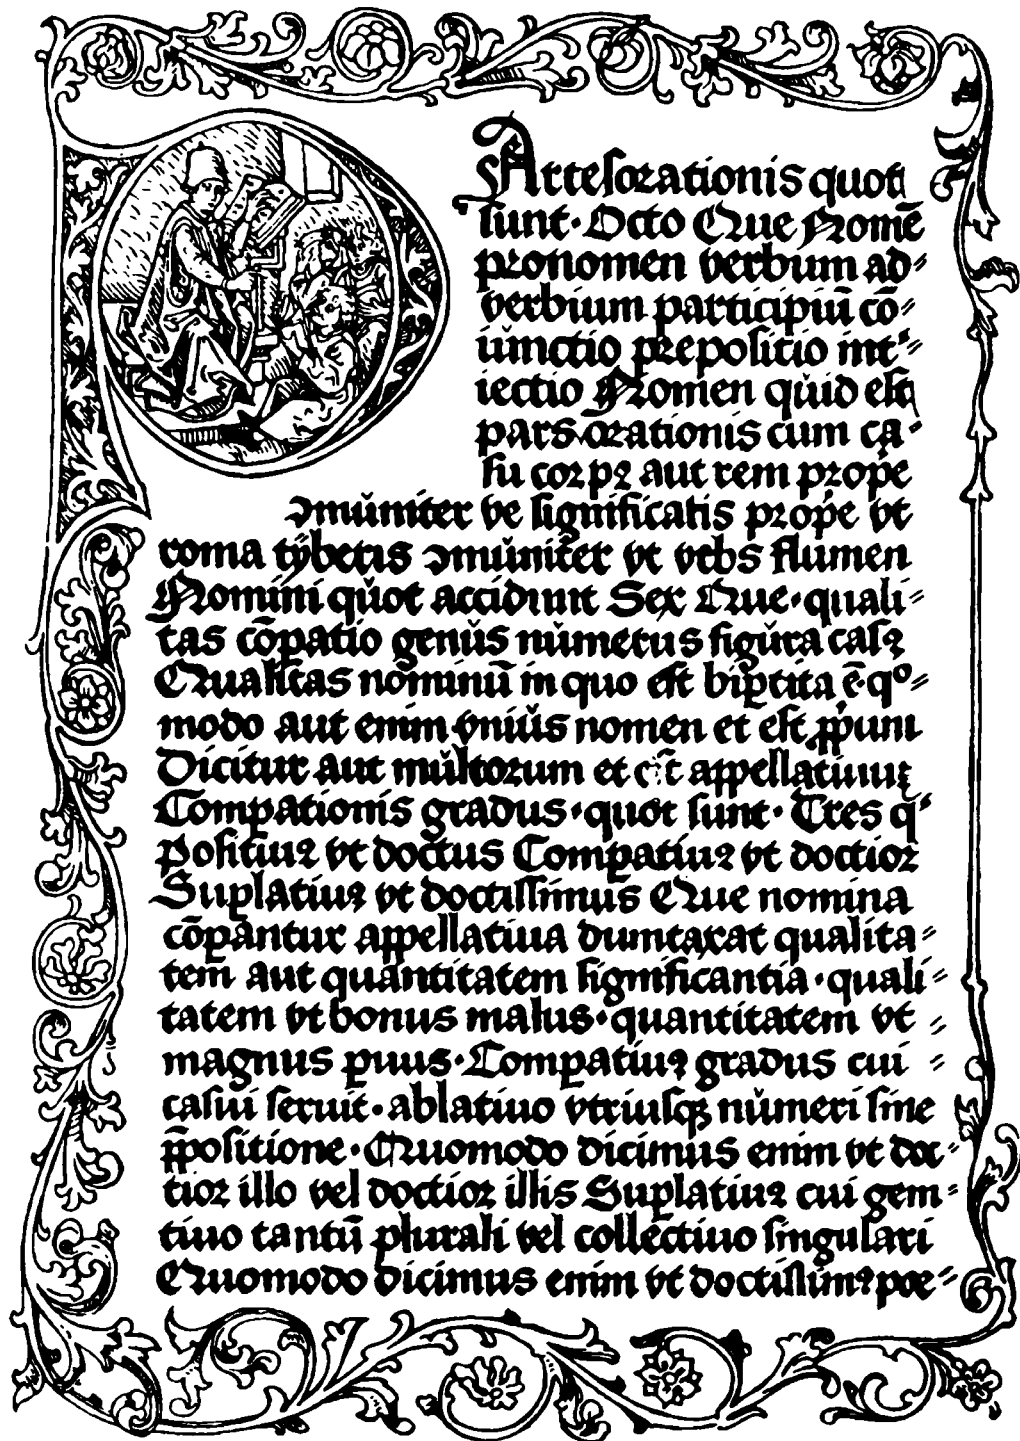 PArtes orationis quot
sunt· Octo Que Nomē
pronomen verbum ad⸗
verbium participiū cō⸗
iunctio prepositio int'⸗
iectio Nomen quid est
pars orationis cum ca⸗
su corpꝛ aut rem prop'e
ꝯmuniter ve significatis prop'e vt
roma tyberis ꝯmuniter vt vrbs flumen
Nomini quot accidunt Sex Que· quali⸗
tas cōꝑatio genus numerus figura casꝰ
Qualitas nominū in quo est biꝑtita ē· qº⸗
modo aut enim vnius nomen et est ꝓpꝛium
Dicitur aut multorum et est appellatiuuꝫ
Comꝑationis gradus· quot sunt· Tres q̄
Positiuꝰ vt doctus Comꝑatiuꝰ vt doctior
Suꝑlatiuꝰ vt doctissimus Que nomina
cōꝑantur appellatiua dumtaxat qualita⸗
tem aut quantitatem significantia· quali⸗
tatem vt bonus malus· quantitatem vt ⸗
magnus ꝑuus· Comꝑatiuꝰ gradus cui ⸗
casui seruit· ablatiuo vtriusqꝫ numeri sine
p̄positione· Quomodo dicimus enim vt doc⸗
tior illo vel doctior illis Suꝑlatiuꝰ cui geni⸗
tiuo tantū plurali vel collectiuo singulari
Quomodo dicimus enim vt doctissimꝰ poe⸗